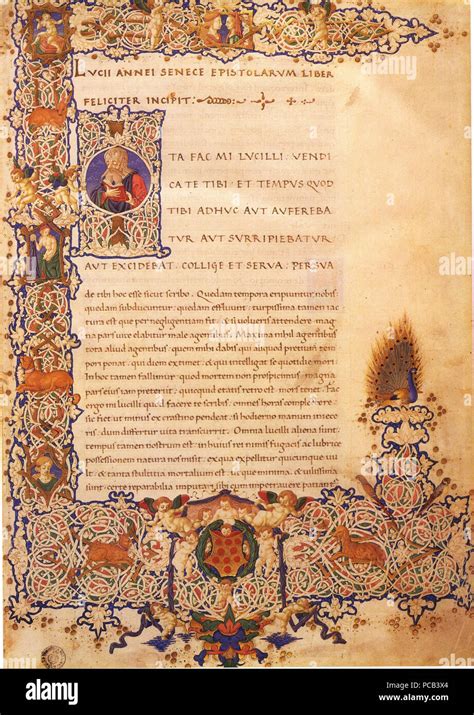 LVCII ANNEI SENECE EPISTOLARVM LIBER
FELICITER INCIPIT:
ITA FAC MI LVCILLI. VENDI
CA TE TIBI. ET TEMPVS QVOD
TIBI ADHVC AVT AVFEREBA
TVR AVT SVRRIPIEBATVR
AVT EXCIDEBAT. COLLIGE ET SERVA. PERSVA
de tibi hoc esse sicut scribo. Quedam tempora eripiuntur nobis.
quedam subducuntur. quedam effluunt. turpissima tamen iac
tura est que per negligentiam fit. et si volueris attendere. mag
na pars vite elabitur male agentibus. Maxima nihil agentibus
tota aliud agentibus. quem mihi dabis qui aliquod pretium tem
pori ponat. qui diem extimet. et qui intelligat se quotidie mori.
In hoc enim fallimur. quod mortem non prospicimus. magna
pars eius iam preterit. quicquid etatis retro est. mors tenet. Fac
ergo mi lucilli quod facis. te scribis. omnes horas complec
tere. sic fiet ut minus ex crastino pendeat. si hodierno manum inieceris
dum differtur vita transcurrit. Omnia lucilli aliena sunt.
tempus tamen nostrum est. in huius rei unius fugacis ac lubrice
possessionem natura nos misit. ex qua expellit quicunque vult
et tanta stultitia mortalium est. ut que minima et vilissima
sunt. certe reparabilia imputari sibi cum impetravere patiantur
alamy
Image ID: PCB3X4
www.alamy.com